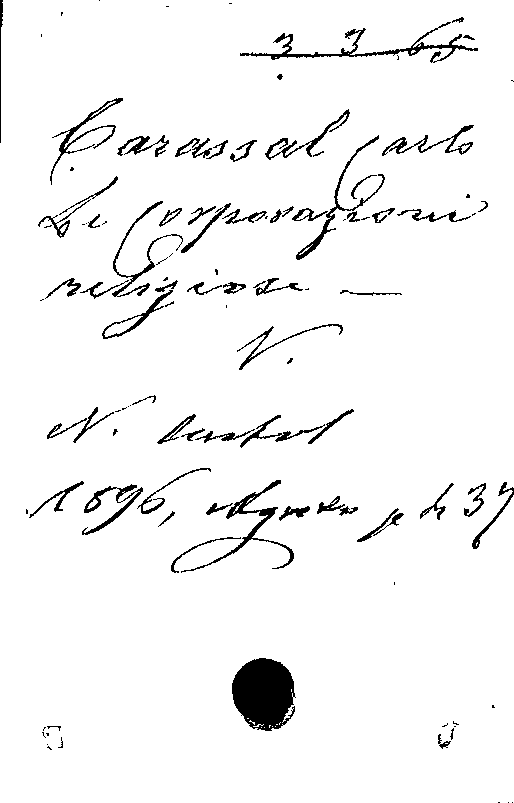 3.3.65
Carassal Carlo
Le Corporazioni
religiose —
V.
N.
1896, Agosto p. 37